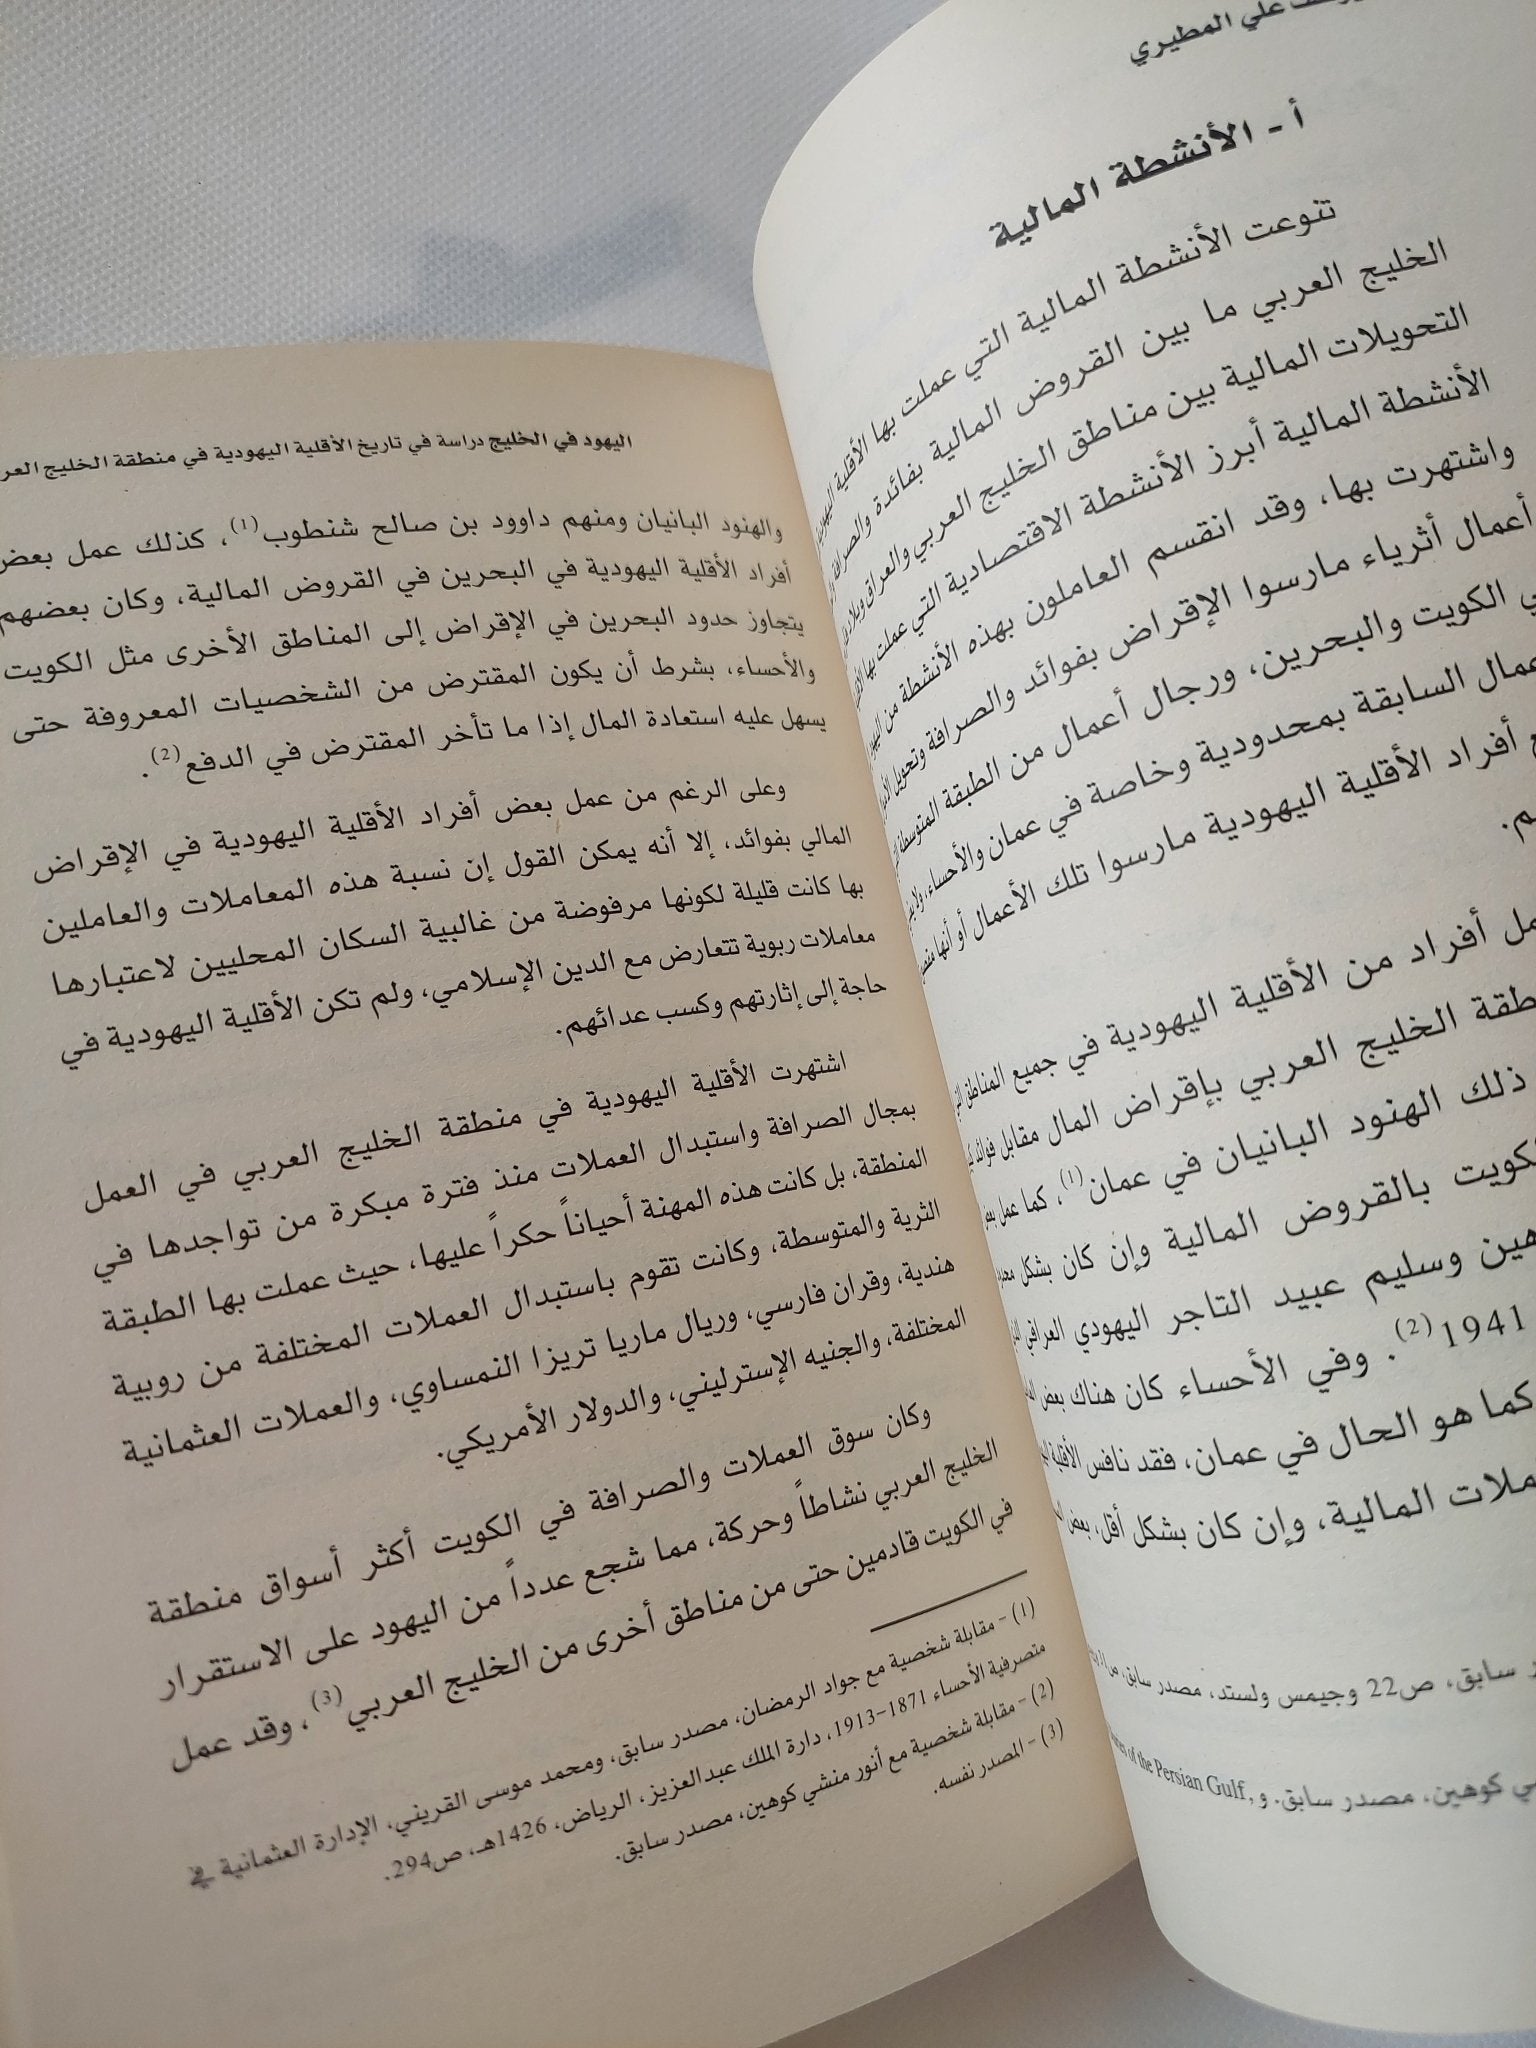 علي المطيري
أ - الأنشطة المالية
تنوعت الأنشطة المالية التي عملت بها الأقلية
الخليج العربي ما بين القروض المالية بفائدة والصرافة
التحويلات المالية بين مناطق الخليج العربي والعراق
الأنشطة المالية أبرز الأنشطة الاقتصادية التي عملت بها
واشتهرت بها، وقد انقسم العاملون بهذه الأنشطة من
أعمال أثرياء مارسوا الإقراض بفوائد والصرافة وتحويل
الكويت والبحرين، ورجال أعمال من الطبقة المتوسطة
السابقة بمحدودية وخاصة في عمان والأحساء،
أفراد الأقلية اليهودية مارسوا تلك الأعمال أو أنها
أفراد من الأقلية اليهودية في جميع المناطق
الخليج العربي بإقراض المال مقابل فوائد
ذلك الهنود البانيان في عمان(1)، كما عمل
بالقروض المالية وإن كان بشكل
وسليم عبيد التاجر اليهودي العراقي
1941(2). وفي الأحساء كان هناك بعض
كما هو الحال في عمان، فقد نافس الأقلية
المالية، وإن كان بشكل أقل، بعض
سابق، ص22 وجيمس ولستد، مصدر سابق،
كوهين، مصدر سابق. و of the Persian Gulf,
اليهود في الخليج دراسة في تاريخ الأقلية اليهودية في منطقة الخليج العر
والهنود البانيان ومنهم داوود بن صالح شنطوب(1)، كذلك عمل بعض
أفراد الأقلية اليهودية في البحرين في القروض المالية، وكان بعضهم
يتجاوز حدود البحرين في الإقراض إلى المناطق الأخرى مثل الكويت
والأحساء، بشرط أن يكون المقترض من الشخصيات المعروفة حتى
يسهل عليه استعادة المال إذا ما تأخر المقترض في الدفع(2).
وعلى الرغم من عمل بعض أفراد الأقلية اليهودية في الإقراض
المالي بفوائد، إلا أنه يمكن القول إن نسبة هذه المعاملات والعاملين
بها كانت قليلة لكونها مرفوضة من غالبية السكان المحليين لاعتبارها
معاملات ربوية تتعارض مع الدين الإسلامي، ولم تكن الأقلية اليهودية في
حاجة إلى إثارتهم وكسب عدائهم.
اشتهرت الأقلية اليهودية في منطقة الخليج العربي في العمل
بمجال الصرافة واستبدال العملات منذ فترة مبكرة من تواجدها في
المنطقة، بل كانت هذه المهنة أحياناً حكراً عليها، حيث عملت بها الطبقة
الثرية والمتوسطة، وكانت تقوم باستبدال العملات المختلفة من روبية
هندية، وقران فارسي، وريال ماريا تريزا النمساوي، والعملات العثمانية
المختلفة، والجنيه الإسترليني، والدولار الأمريكي.
وكان سوق العملات والصرافة في الكويت أكثر أسواق منطقة
الخليج العربي نشاطاً وحركة، مما شجع عدداً من اليهود على الاستقرار
في الكويت قادمين حتى من مناطق أخرى من الخليج العربي(3)، وقد عمل
(1) - مقابلة شخصية مع جواد الرمضان، مصدر سابق، ومحمد موسى القريني، الإدارة العثمانية في
متصرفية الأحساء 1871-1913، دارة الملك عبدالعزيز، الرياض، 1426هـ، ص294.
(2) - مقابلة شخصية مع أنور منشي كوهين، مصدر سابق.
(3) - المصدر نفسه.